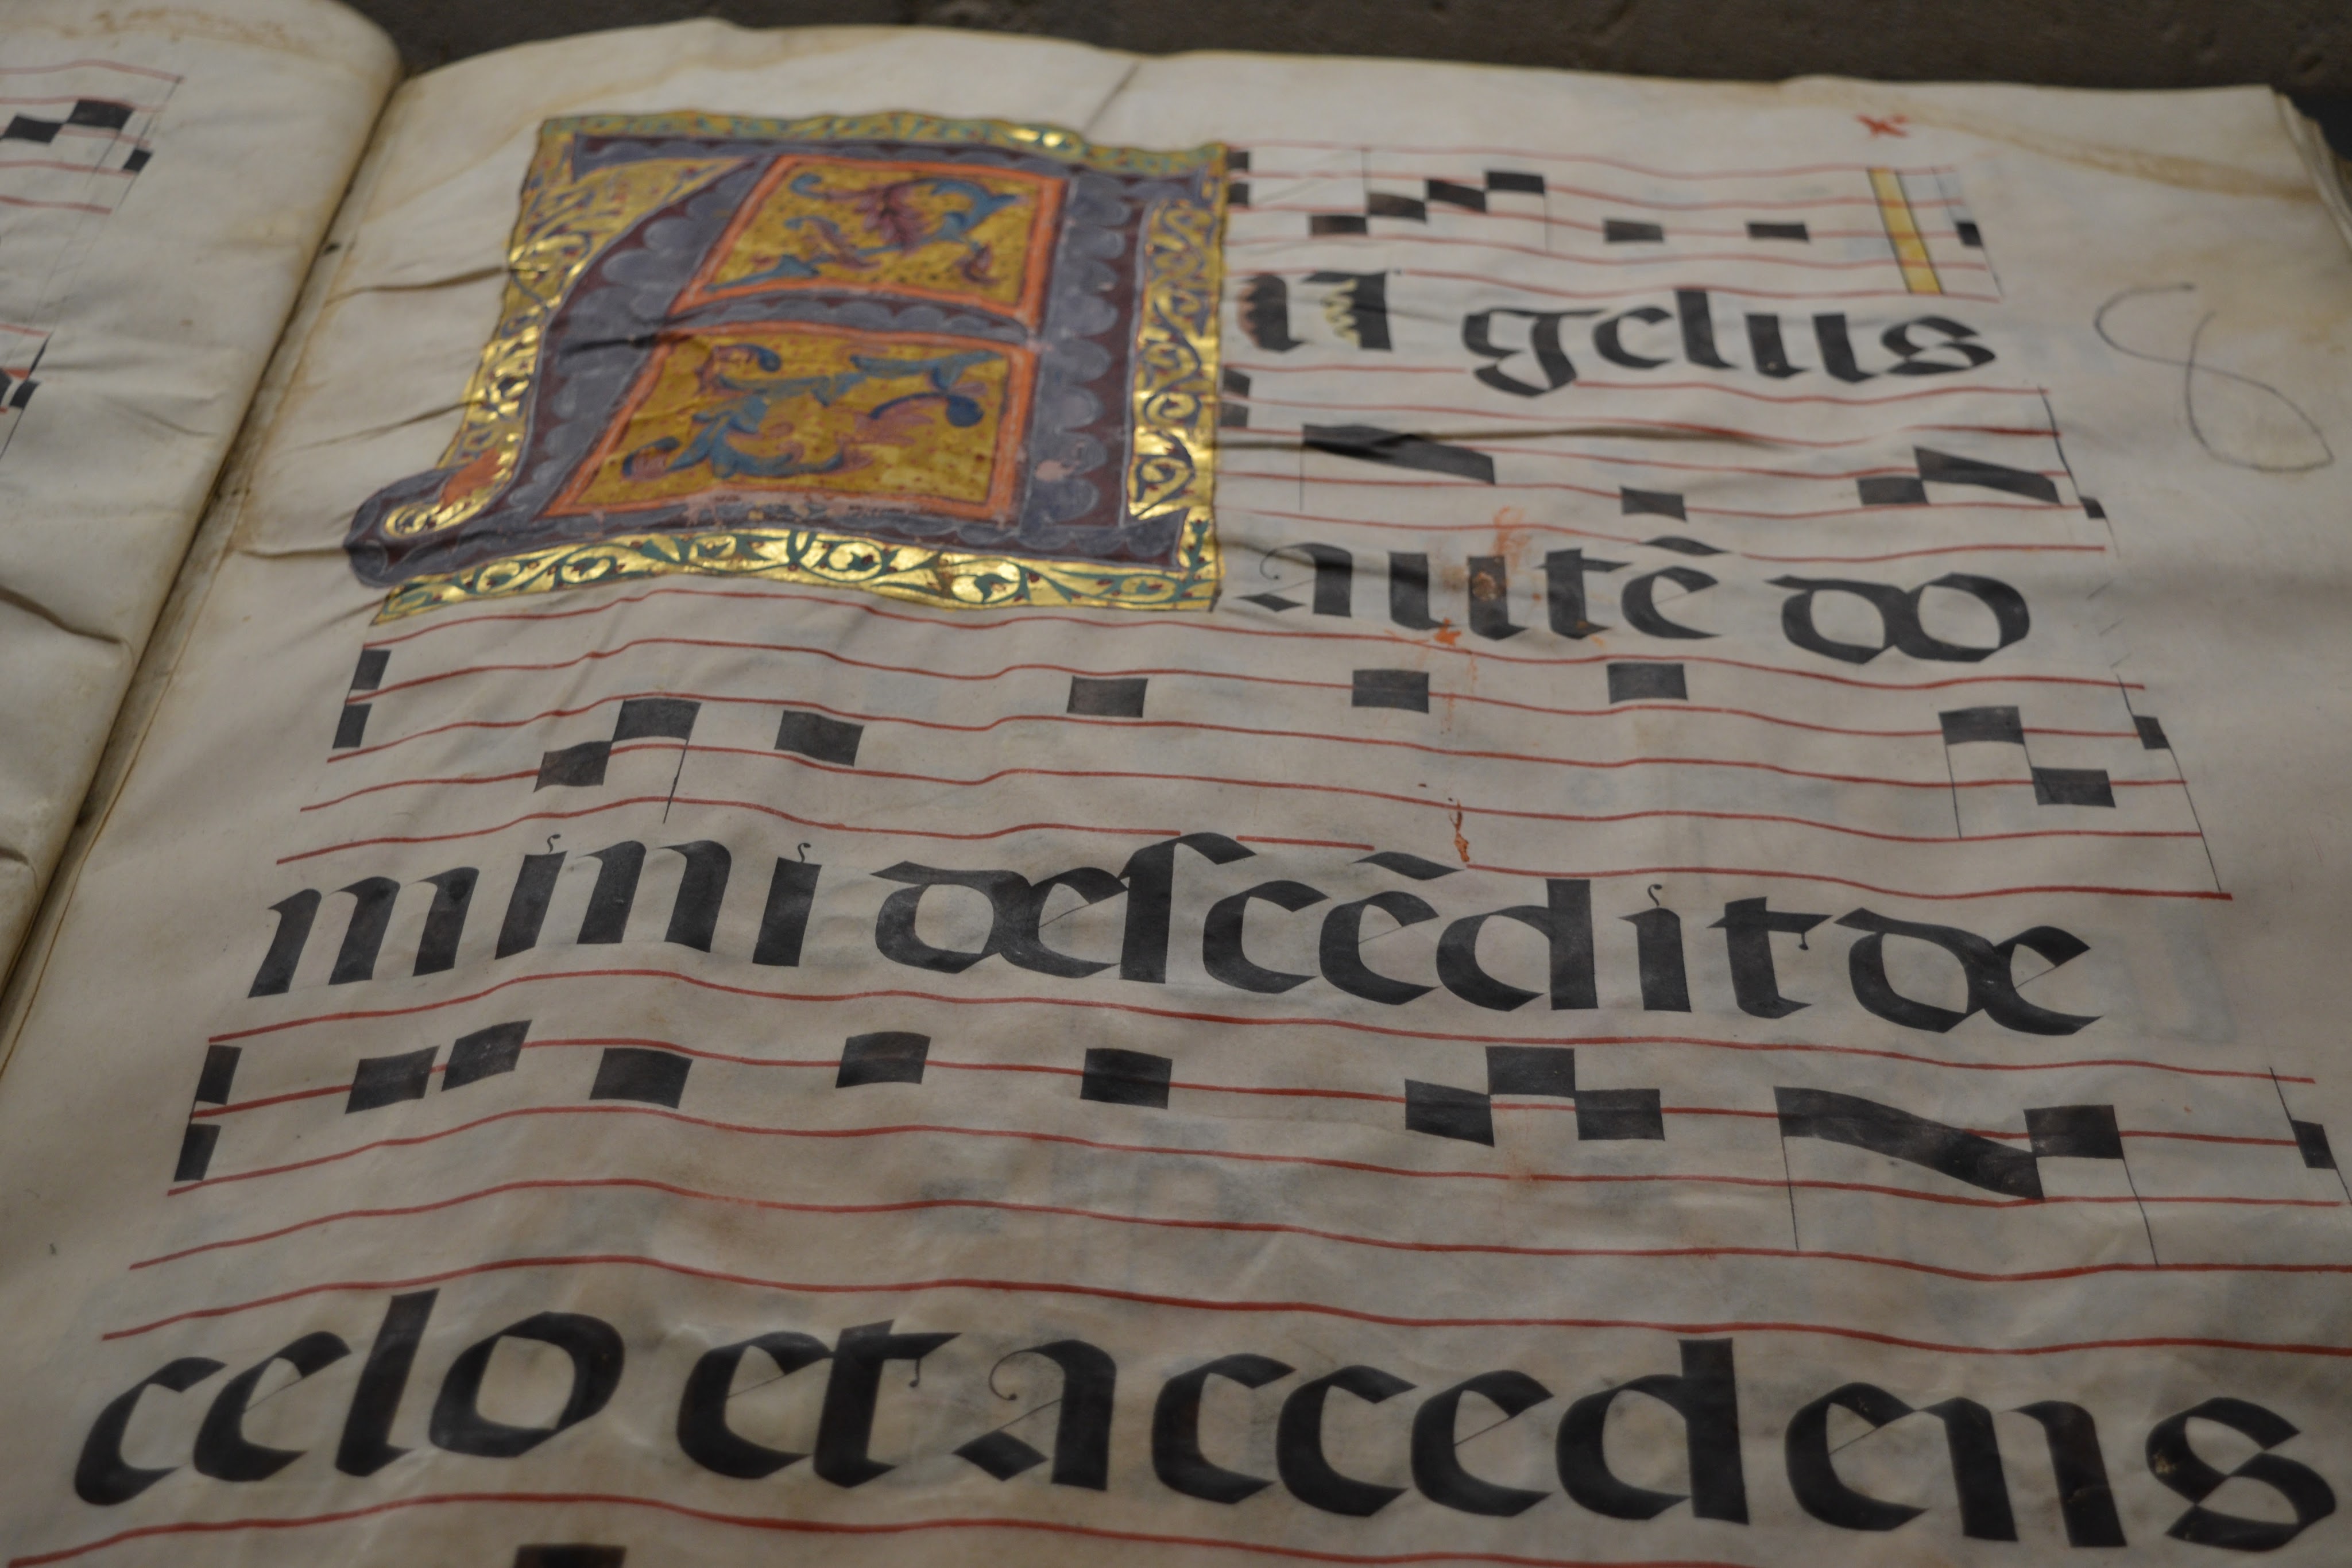 An gelus
autē do
mini descēdit de
celo et accedens